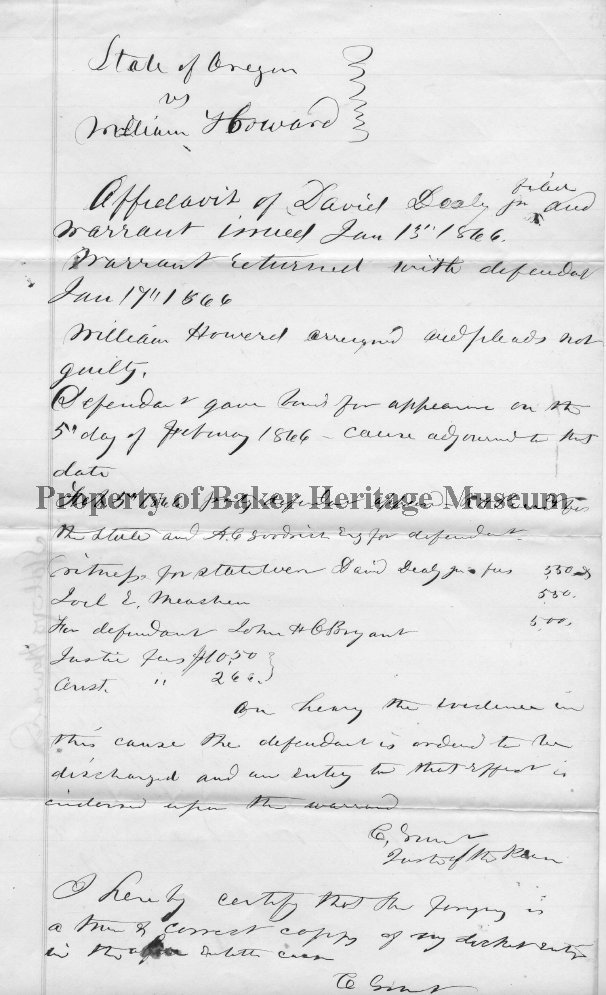 State of Oregon
vs
William Howard
Affidavit of David Dealy Jr filed and
warrant issued Jan 13th 1866.
Warrant returned with defendat
Jan 17" 1866
William Howerd arreignd and pleads not
guilty.
Defendant gave bond for appearance on the
5" day of Febuary 1866 - cause adjourned to that
date
Property of Baker Heritage Museum
the State and A.C. Goodrich Esq for defendant.
Witness for state were David Dealy Jr. fees 5.50
Joel E. 5.50.
For defendant John H C Bryant 5.00.
Justice fees $10.50
Const. " 2.66.
On hearing the evidence in
this cause the defendant is ordered to be
discharged and an entry to that effect is
endorsed upon the warrant
C. Grant
Justice of the Peace
I hereby certify that the foregoing is
a true & correct copy of my docket entry
in the case
C Grant